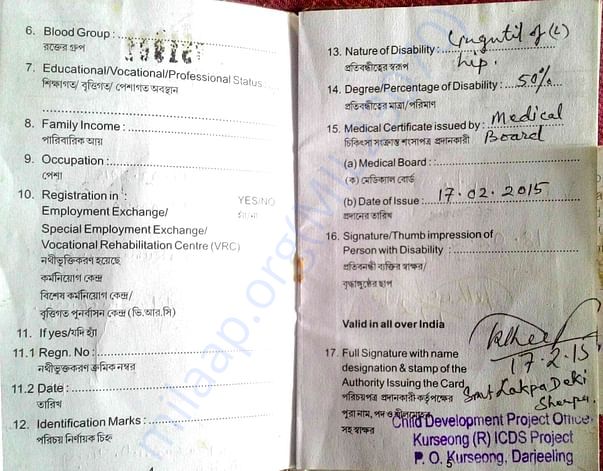 6. Blood Group :
রক্তের গ্রুপ
7. Educational/Vocational/Professional Status
শিক্ষাগত/ বৃত্তিগত/ পেশাগত অবস্থান
8. Family Income :
পারিবারিক আয়
9. Occupation :
পেশা
10. Registration in : YES/NO
Employment Exchange/ হ্যাঁ/না
Special Employment Exchange/
Vocational Rehabilitation Centre (VRC)
নথীভুক্তিকরণ হয়েছে
কর্মনিয়োগ কেন্দ্র
বিশেষ কর্মনিয়োগ কেন্দ্র/
বৃত্তিগত পুনর্বাসন কেন্দ্র (ভি.আর.সি)
11. If yes/যদি হ্যাঁ
11.1 Regn. No :
নথীভুক্তকরণ ক্রমিক নম্বর
11.2 Date :
তারিখ
12. Identification Marks :
পরিচয় নির্ণায়ক চিহ্ন
13. Nature of Disability : of (L)
প্রতিবন্ধীত্বের স্বরূপ hip.
14. Degree/Percentage of Disability : 50%
প্রতিবন্ধীত্বের মাত্রা/পরিমাণ
15. Medical Certificate issued by : Medical
চিকিৎসা সংক্রান্ত শংসাপত্র প্রদানকারী Board
(a) Medical Board :
(ক) মেডিক্যাল বোর্ড
(b) Date of Issue : 17.02.2015
প্রদানের তারিখ
16. Signature/Thumb impression of
Person with Disability :
প্রতিবন্ধী ব্যক্তির স্বাক্ষর/
বৃদ্ধাঙ্গুষ্ঠের ছাপ
Valid in all over India
17.2.15
17. Full Signature with name
designation & stamp of the
Authority Issuing the Card
Smt Lakpa Deki
পরিচয়পত্র প্রদানকারী কর্তৃপক্ষের
Sherpa.
পুরা নাম, পদ ও শীলমোহর
সহ স্বাক্ষর
Child Development Project Office
Kurseong (R) ICDS Project
P. O. Kurseong, Darjeeling
milaap.org